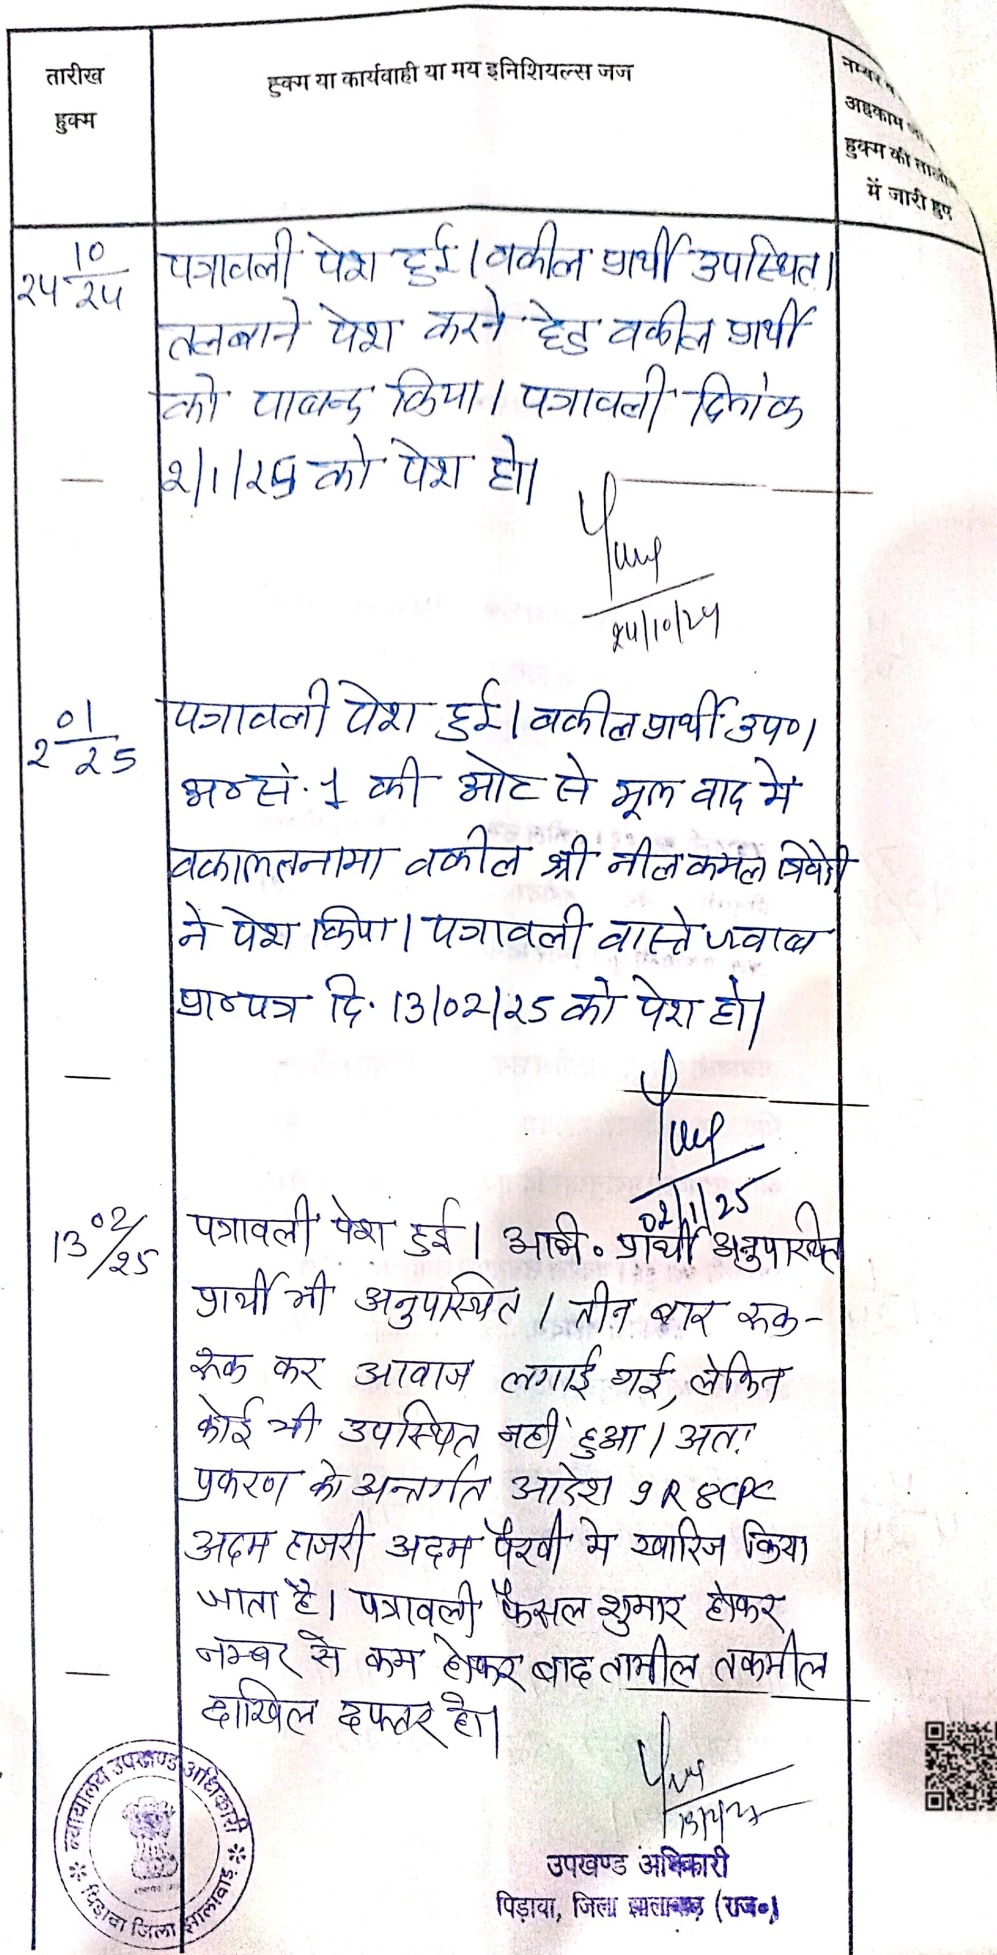 तारीख
हुक्म
हुक्म या कार्यवाही या मय इनिशियल्स जज
नम्बर
अहकाम
हुक्म की
में जारी हुए
24 10/24
पत्रावली पेश हुई। वकील प्रार्थी उपस्थित।
तलबाने पेश करने हेतु वकील प्रार्थी
को पाबन्द किया। पत्रावली दिनांक
2/1/25 को पेश हो।
24/10/24
2 01/25
पत्रावली पेश हुई। वकील प्रार्थी उप०।
अ०सं. 1 की ओर से मूल वाद में
वकालतनामा वकील श्री नीलकमल त्रिवेदी
ने पेश किया। पत्रावली वास्ते जवाब
प्रा०पत्र दि. 13/02/25 को पेश हो।
02/1/25
13 02/25
पत्रावली पेश हुई। अभि. प्रार्थी अनुपस्थित
प्रार्थी भी अनुपस्थित। तीन बार रुक-
रुक कर आवाज लगाई गई, लेकिन
कोई भी उपस्थित नहीं हुआ। अतः
प्रकरण को अन्तर्गत आदेश 9 R 8 CPC
अदम हाजरी अदम पैरवी में खारिज किया
जाता है। पत्रावली फैसल शुमार होकर
नम्बर से कम होकर बाद तामील तकमील
दाखिल दफ्तर हो।
न्यायालय उपखण्ड अधिकारी
पिड़ावा जिला झालावाड़
उपखण्ड अधिकारी
पिड़ावा, जिला झालावाड़ (राज०)